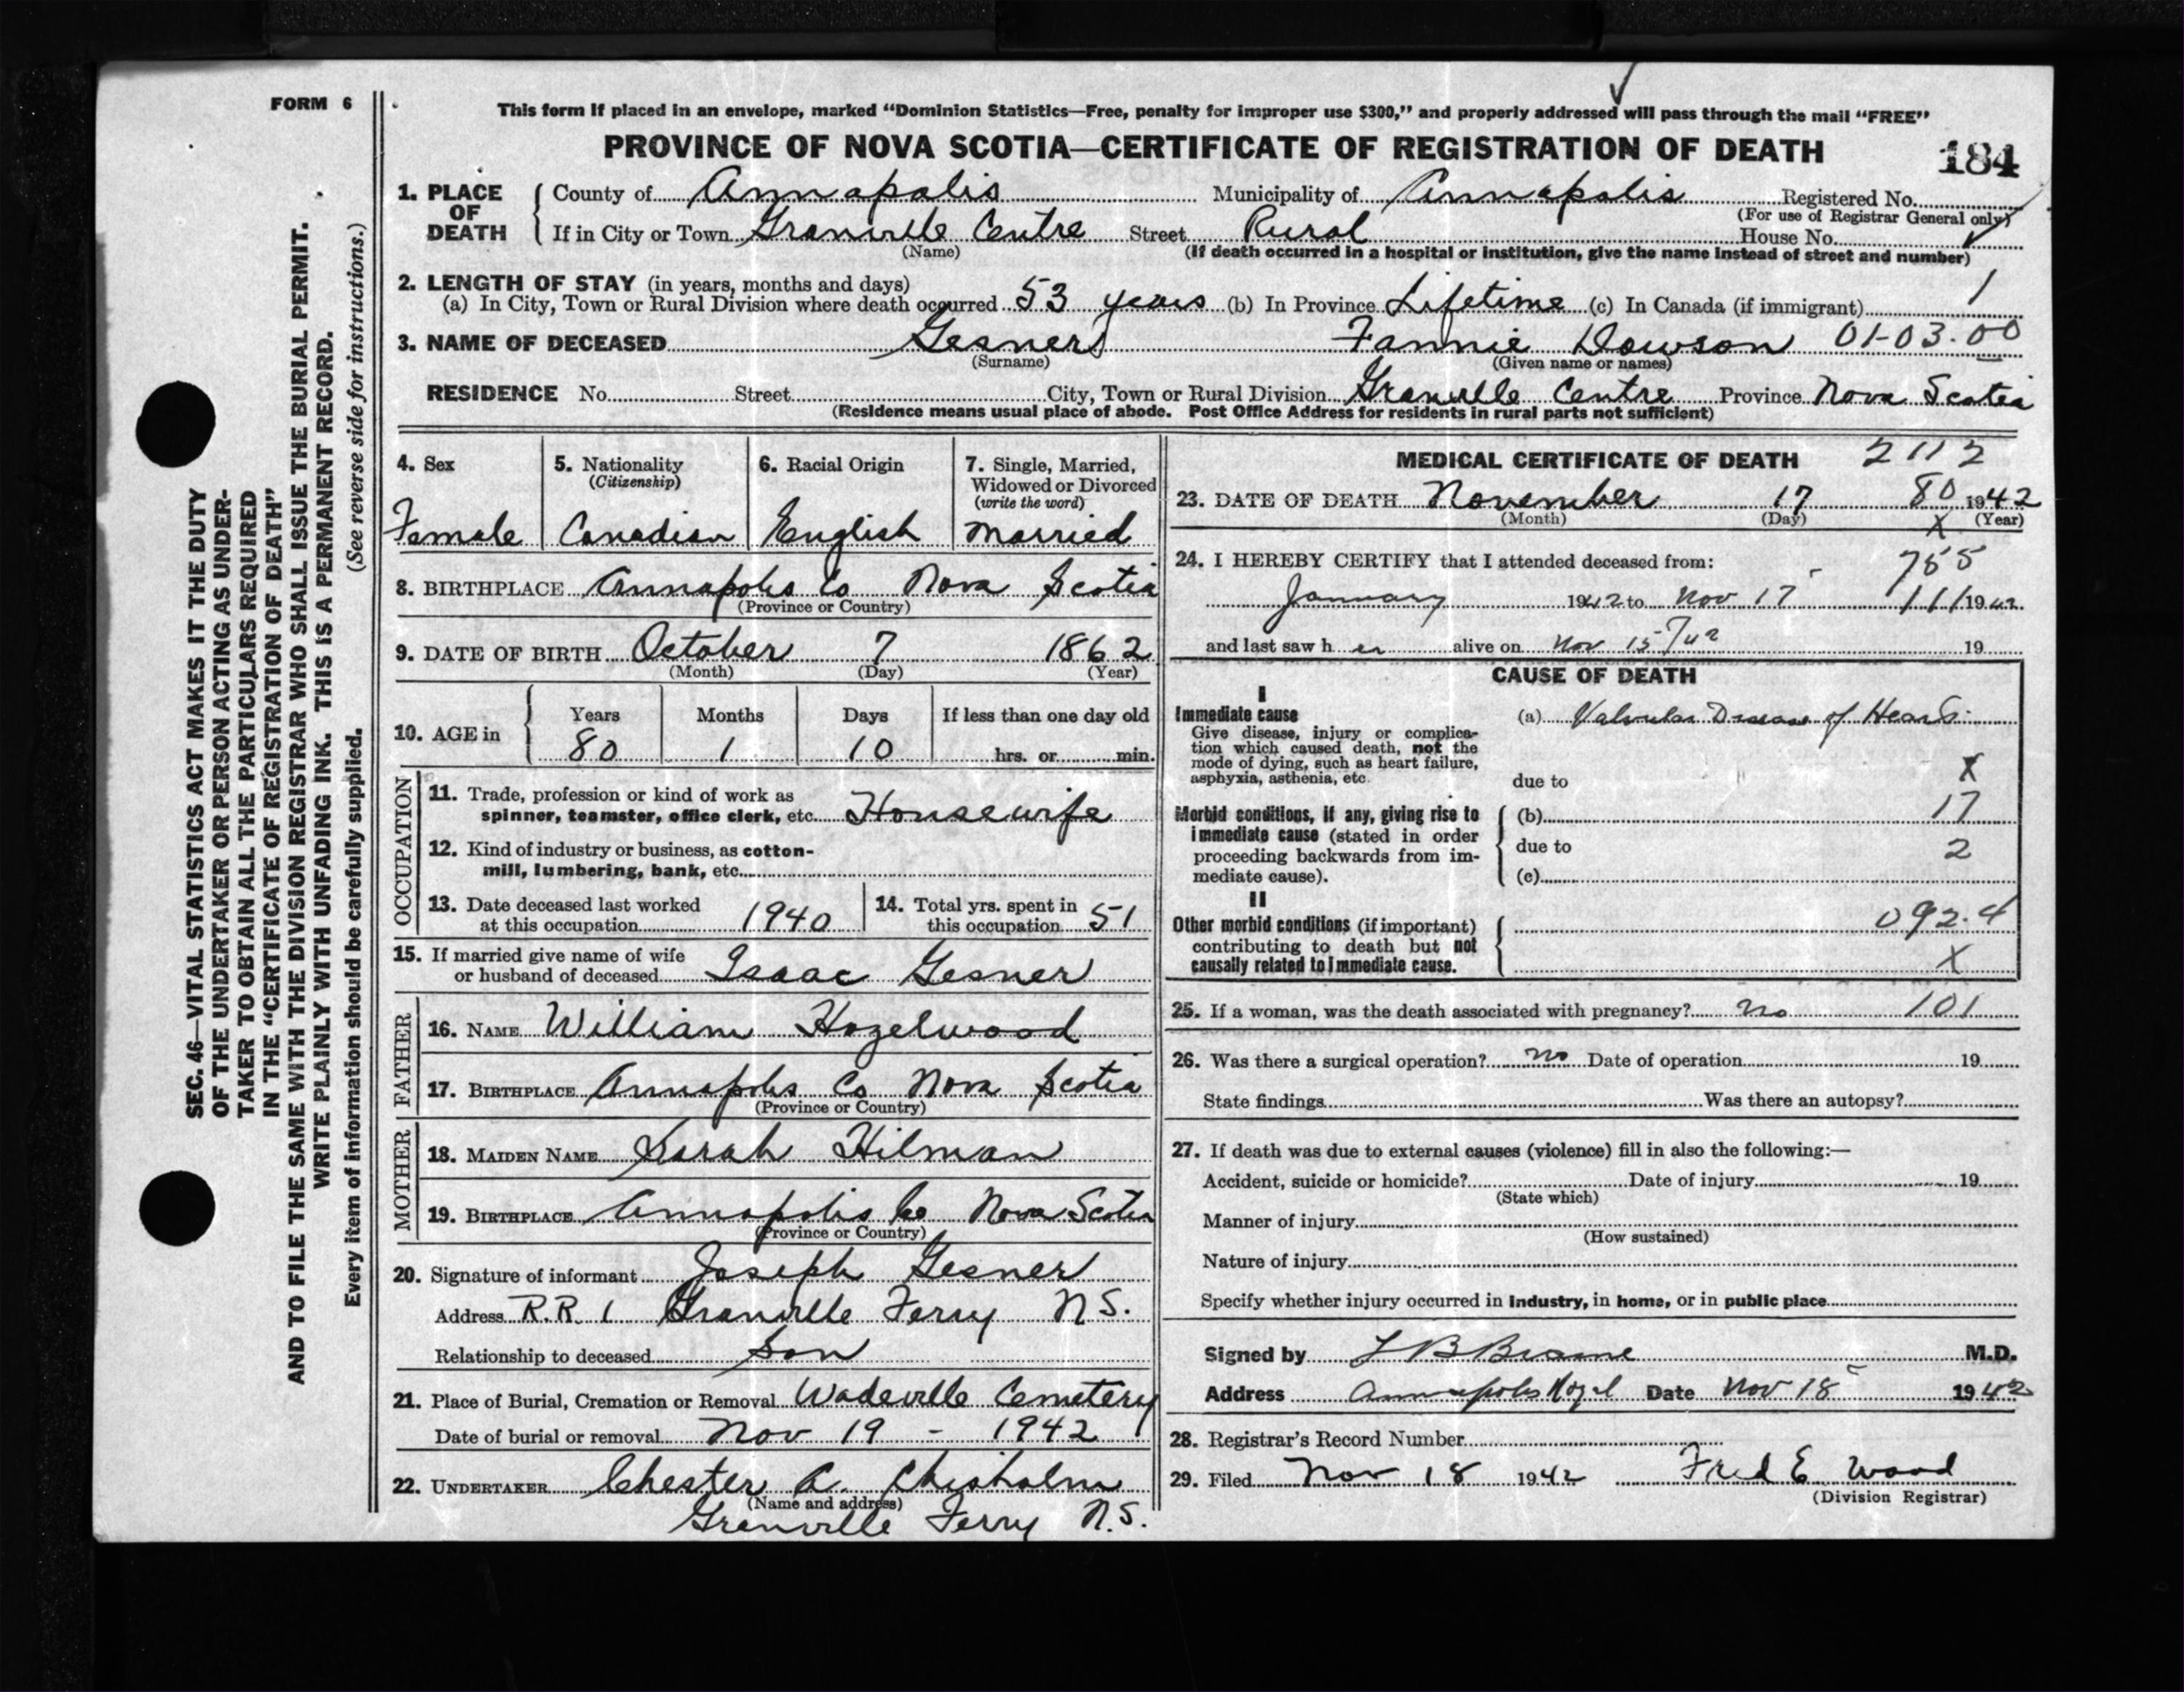 FORM 6
This form If placed in an envelope, marked “Dominion Statistics—Free, penalty for improper use $300,” and properly addressed will pass through the mail “FREE”
PROVINCE OF NOVA SCOTIA—CERTIFICATE OF REGISTRATION OF DEATH 184
1. PLACE OF DEATH County of Annapolis Municipality of Annapolis Registered No.
(For use of Registrar General only)
If in City or Town Granville Centre Street Rural House No.
(Name) (If death occurred in a hospital or institution, give the name instead of street and number)
2. LENGTH OF STAY (in years, months and days)
(a) In City, Town or Rural Division where death occurred 53 years (b) In Province Lifetime (c) In Canada (if immigrant) 1
3. NAME OF DECEASED Gesner Fannie Dowson 01-03.00
(Surname) (Given name or names)
RESIDENCE No. Street City, Town or Rural Division Granville Centre Province Nova Scotia
(Residence means usual place of abode. Post Office Address for residents in rural parts not sufficient)
4. Sex 5. Nationality (Citizenship) 6. Racial Origin 7. Single, Married, Widowed or Divorced (write the word)
Female Canadian English Married
8. BIRTHPLACE Annapolis Co Nova Scotia
(Province or Country)
9. DATE OF BIRTH October 7 1862
(Month) (Day) (Year)
10. AGE in Years Months Days If less than one day old
80 1 10 hrs. or min.
OCCUPATION
11. Trade, profession or kind of work as
spinner, teamster, office clerk, etc. Housewife
12. Kind of industry or business, as cotton-
mill, lumbering, bank, etc.
13. Date deceased last worked
at this occupation 1940
14. Total yrs. spent in
this occupation 51
15. If married give name of wife
or husband of deceased Isaac Gesner
FATHER
16. NAME William Hazelwood
17. BIRTHPLACE Annapolis Co Nova Scotia
(Province or Country)
MOTHER
18. MAIDEN NAME Sarah Hilman
19. BIRTHPLACE Annapolis Co Nova Scotia
(Province or Country)
20. Signature of informant Joseph Gesner
Address R.R. 1 Granville Ferry N.S.
Relationship to deceased Son
21. Place of Burial, Cremation or Removal Wadeville Cemetery
Date of burial or removal Nov 19 - 1942
22. UNDERTAKER Chester A. Chisholm
(Name and address)
Granville Ferry N.S.
MEDICAL CERTIFICATE OF DEATH 2112
23. DATE OF DEATH November 17 80 1942
(Month) (Day) X (Year)
24. I HEREBY CERTIFY that I attended deceased from: 755
January 1942 to Nov 17 111 1942
and last saw her alive on Nov 15 /42 19
CAUSE OF DEATH
I
Immediate cause (a) Valvular Disease of Heart
Give disease, injury or complica-
tion which caused death, not the
mode of dying, such as heart failure,
asphyxia, asthenia, etc. due to X
Morbid conditions, if any, giving rise to (b) 17
immediate cause (stated in order
proceeding backwards from im- due to 2
mediate cause). (c)
II
Other morbid conditions (if important) 092.4
contributing to death but not
causally related to immediate cause. X
25. If a woman, was the death associated with pregnancy? no 101
26. Was there a surgical operation? no Date of operation 19
State findings Was there an autopsy?
27. If death was due to external causes (violence) fill in also the following:—
Accident, suicide or homicide? Date of injury 19
(State which)
Manner of injury
(How sustained)
Nature of injury
Specify whether injury occurred in industry, in home, or in public place
Signed by M.D.
Address Annapolis Royal Date Nov 18 1942
28. Registrar's Record Number
29. Filed Nov 18 1942 Fred E Wood
(Division Registrar)
SEC. 46—VITAL STATISTICS ACT MAKES IT THE DUTY
OF THE UNDERTAKER OR PERSON ACTING AS UNDER-
TAKER TO OBTAIN ALL THE PARTICULARS REQUIRED
IN THE “CERTIFICATE OF REGISTRATION OF DEATH”
AND TO FILE THE SAME WITH THE DIVISION REGISTRAR WHO SHALL ISSUE THE BURIAL PERMIT.
WRITE PLAINLY WITH UNFADING INK. THIS IS A PERMANENT RECORD.
Every item of information should be carefully supplied. (See reverse side for instructions.)